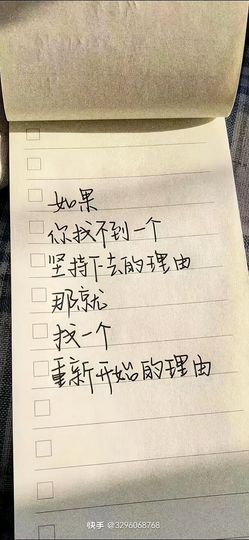 如果
你找不到一个
坚持下去的理由
那就
找一个
重新开始的理由
快手 @3296068768